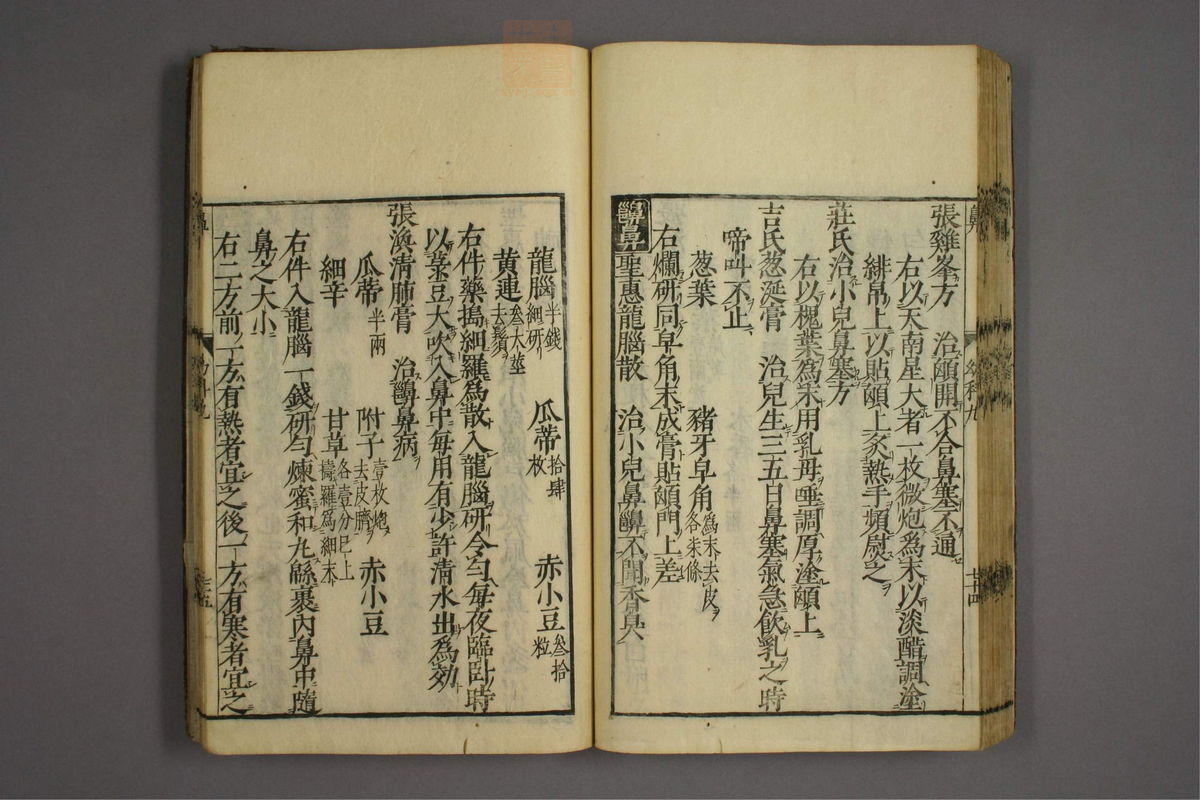 張雞峯方　治䪿開不合鼻塞不通
右以天南星大者一枚微炮爲末以淡醋調塗
緋帛上以貼䪿上炙熱手頻熨之
莊氏治小兒鼻塞方
右以槐葉爲末用乳母唾調厚塗䪿上
吉氏葱涎膏　治兒生三五日鼻塞氣急飲乳之時
啼叫不止
葱葉　豬牙皁角爲末去皮各柒條
右爛研同皁角末成膏貼䪿門上差
齆鼻　聖惠龍腦散　治小兒鼻齆不聞香臭
龍腦半錢細研　瓜蒂拾肆枚　赤小豆叁拾粒
黄連叁大莖去鬚
右件藥搗細羅爲散入龍腦研令匀每夜臨臥時
以菉豆大吹入鼻中每用有少許清水出爲効
張渙清肺膏　治齆鼻病
瓜蒂半兩　附子壹枚炮去皮臍　赤小豆
細辛　甘草各壹分已上擣羅爲細末
右件入龍腦一錢研匀煉蜜和丸緜裹內鼻中隨
鼻之大小
右二方前一方有熱者宜之後一方有寒者宜之